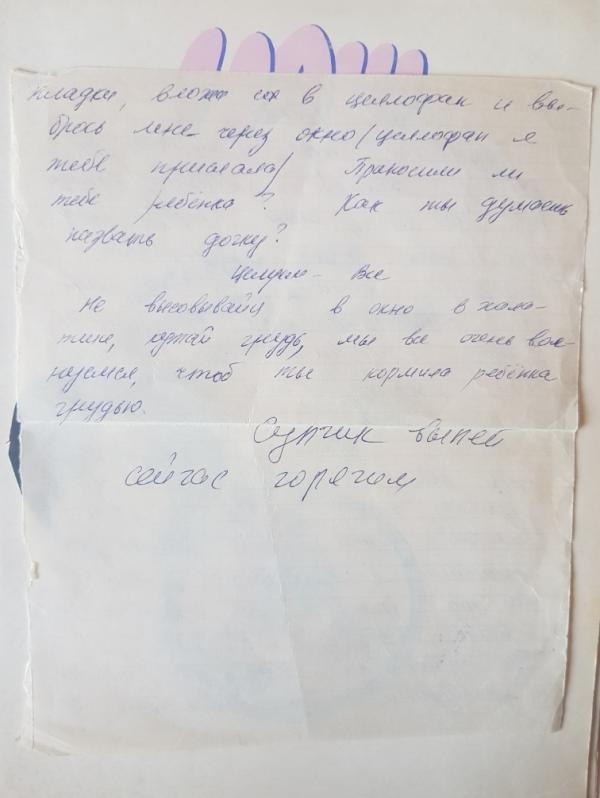 кладки, вложи их в целлофан и вы-
брось мне через окно /целлофан я
тебе прислала/ Приносили ли
тебе ребёнка? Как ты думаешь
назвать дочку?
Целуем – Все
Не высовывайся в окно в хала-
тике, кутай грудь, мы все очень вол-
нуемся, чтоб ты кормила ребёнка
грудью.
Супчик выпей
сейчас горячим